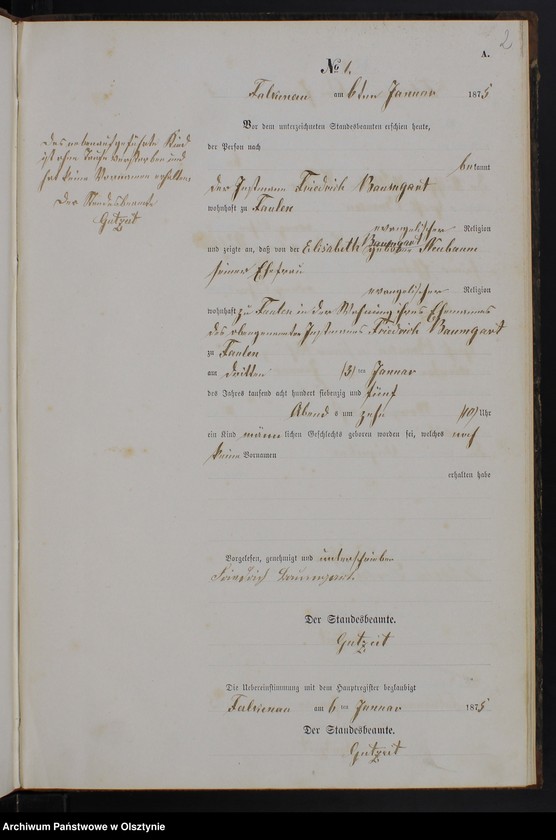 2
A.
No 1.
Falkenau am 6ten Januar 1875
Vor dem unterzeichneten Standesbeamten erschien heute,
der Person nach
bekannt
der Instmann Friedrich Baumgart
wohnhaft zu Taulen
evangelischer Religion
und zeigte an, daß von der Elisabeth Baumgart geborene Neubaum
seiner Ehefrau
evangelischer Religion
wohnhaft zu Taulen in der Wohnung ihres Ehemannes
des obengenannten Instmanns Friedrich Baumgart
zu Taulen
am dritten (3) ten Januar
des Jahres tausend acht hundert siebenzig und fünf
Abend s um zehn (10) Uhr
ein Kind männ lichen Geschlechts geboren worden sei, welches noch
keine Vornamen
erhalten habe
Das nebenaufgeführte Kind
ist ohne Taufe verstorben und
hat keine Vornamen erhalten
Der Standesbeamte
Gutzeit
Vorgelesen, genehmigt und unterschrieben
Friedrich Baumgart
Der Standesbeamte.
Gutzeit
Die Uebereinstimmung mit dem Hauptregister beglaubigt
Falkenau am 6 ten Januar 1875
Der Standesbeamte.
Gutzeit
Archiwum Państwowe w Olsztynie